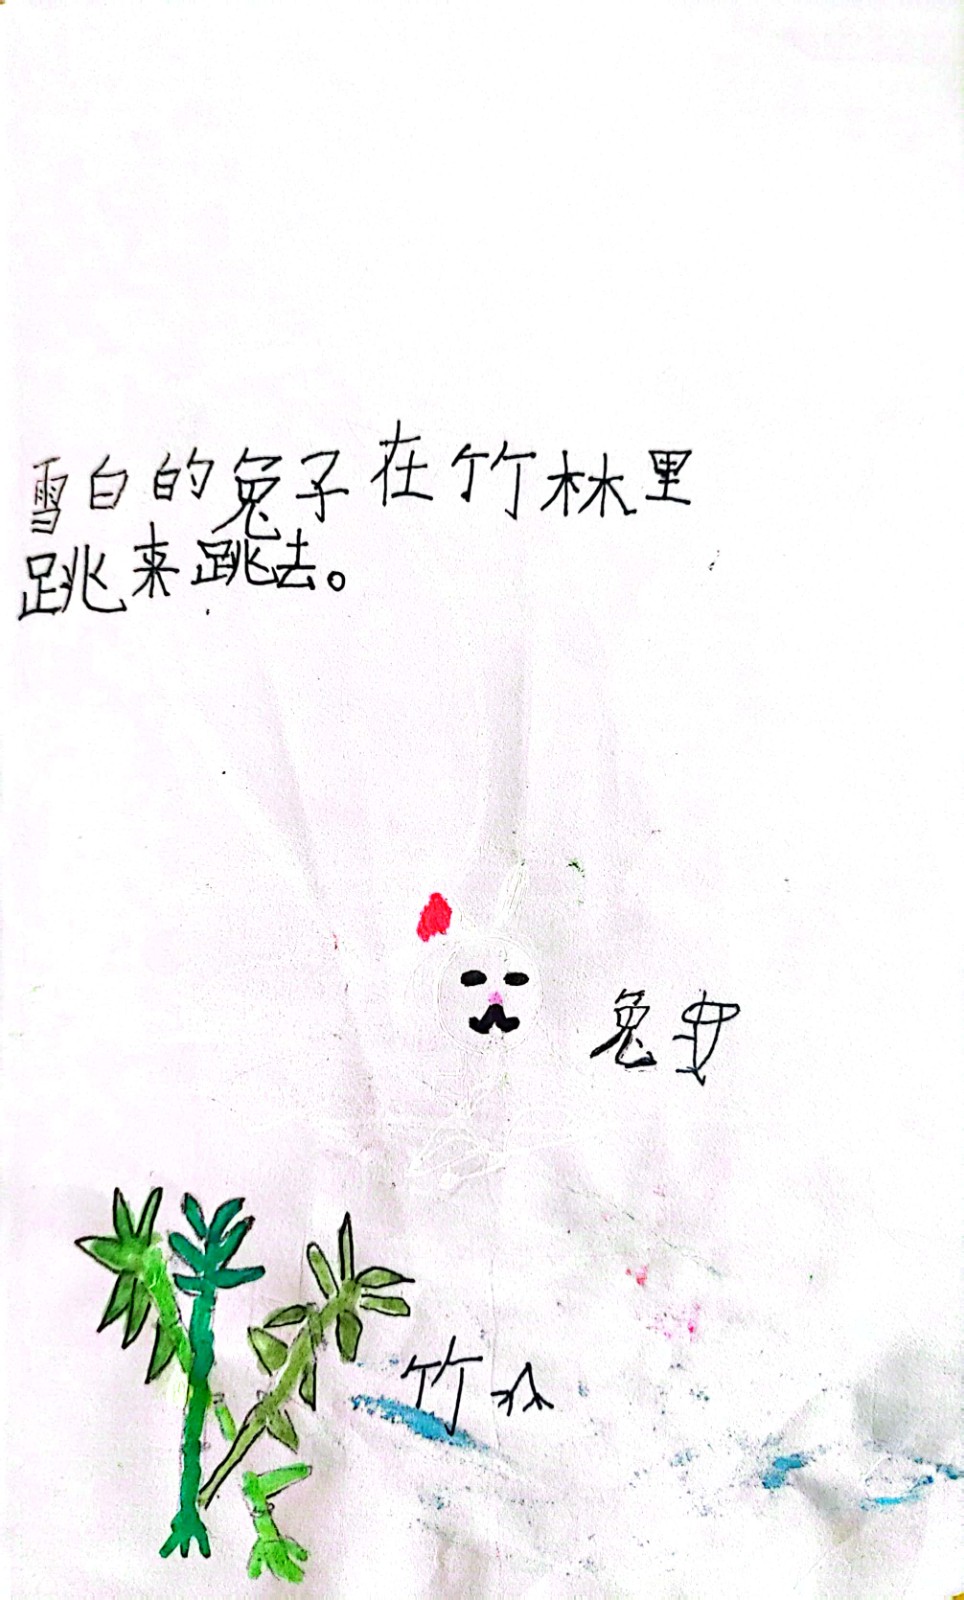 雪白的兔子在竹林里
跳来跳去。
兔
竹